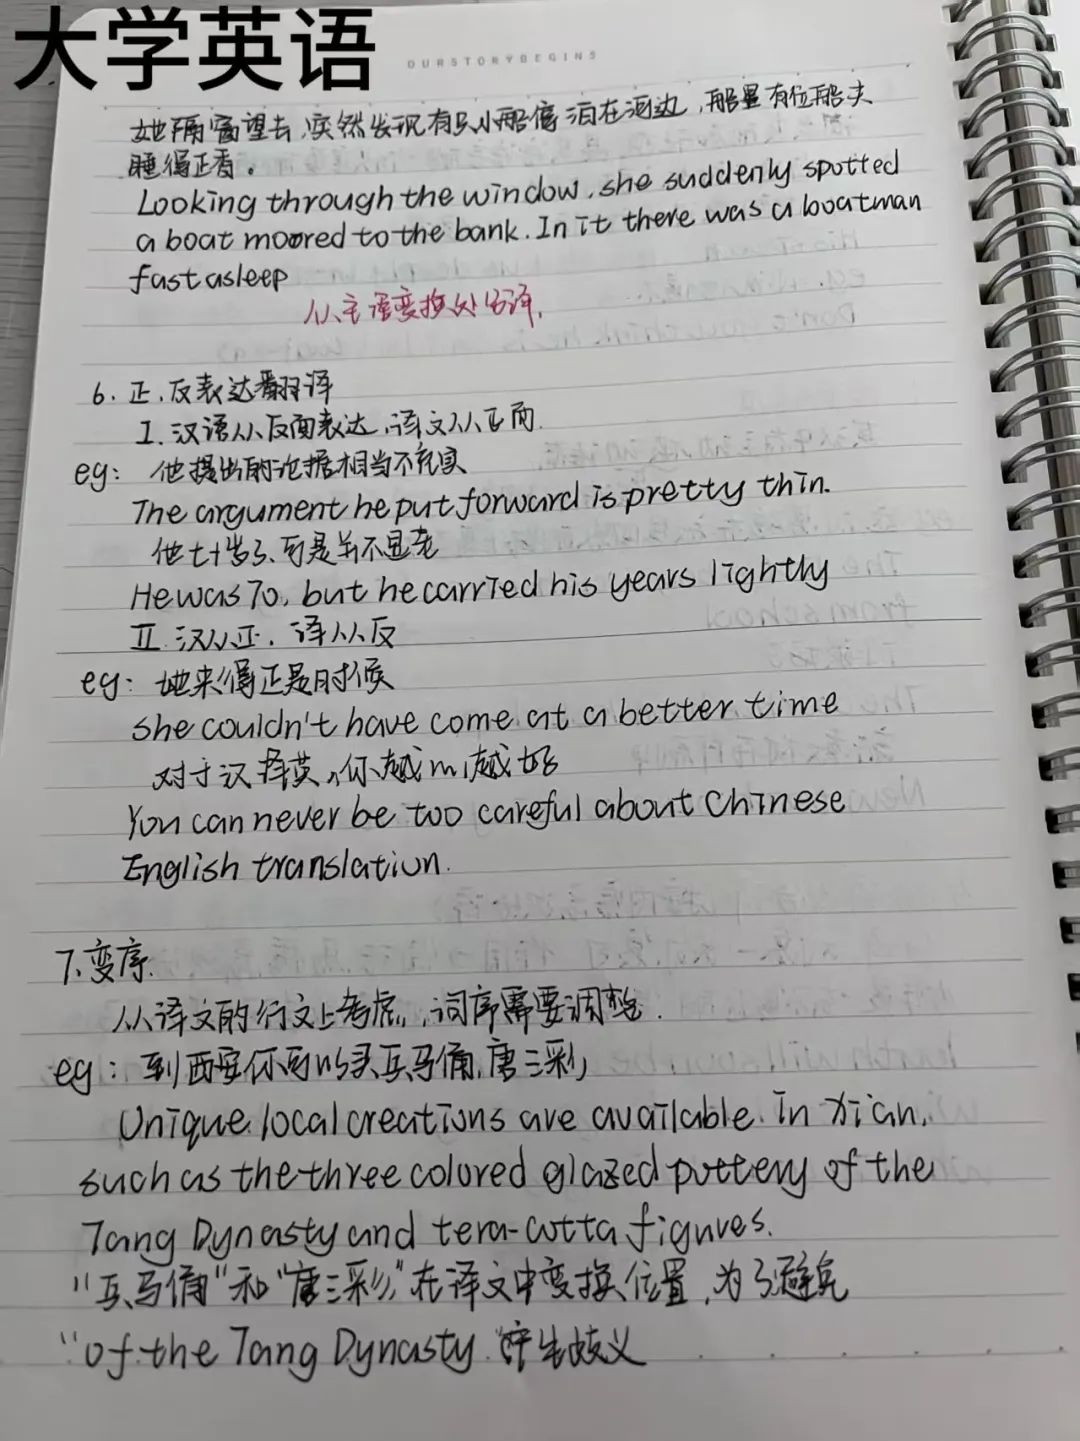 大学英语
OURSTORYBEGINS
她隔窗望去,突然发现有只小船停泊在河边,船里有位船夫
睡得正香。
Looking through the window, she suddenly spotted
a boat moored to the bank. In it there was a boatman
fast asleep
从主语变换处分译.
6. 正、反表达翻译
I. 汉语从反面表达,译文从正面.
eg: 他提出的论据相当不充实
The argument he put forward is pretty thin.
他七十岁了、可是并不显老
He was 70, but he carried his years lightly
II. 汉从正, 译从反
eg: 她来得正是时候
she couldn't have come at a better time
对于汉译英,你越m越好
You can never be too careful about Chinese
English translation.
7. 变序.
从译文的行文上考虑,词序需要调整.
eg: 到西安你可以买兵马俑,唐三彩
Unique local creations are available in Xi'an,
such as the three colored glazed pottery of the
Tang Dynasty and tera-cotta figures.
"兵马俑"和"唐三彩"在译文中变换位置,为了避免
"of the Tang Dynasty"产生歧义